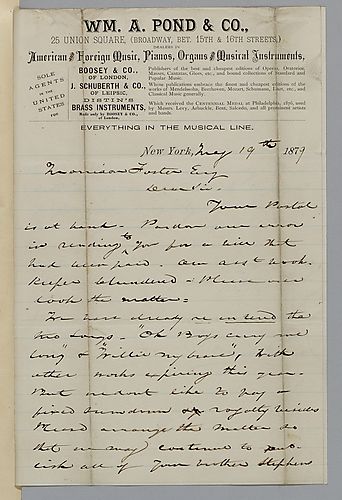 WM. A. POND & CO.,
25 UNION SQUARE, (BROADWAY, BET. 15TH & 16TH STREETS,)
DEALERS IN
American and Foreign Music, Pianos, Organs and Musical Instruments,
SOLE
AGENTS
IN THE
UNITED
STATES
FOR
BOOSEY & CO.,
OF LONDON,
J. SCHUBERTH & CO.,
OF LEIPSIC,
DISTIN'S
BRASS INSTRUMENTS,
Made only by BOOSEY & CO.,
of London,
Publishers of the best and cheapest editions of Operas, Oratorios,
Masses, Cantatas, Glees, etc., and bound collections of Standard and
Popular Music.
Whose publications embrace the finest and cheapest editions of the
works of Mendelssohn, Beethoven, Mozart, Schumann, Liszt, etc., and
Classical Music generally.
Which received the CENTENNIAL MEDAL at Philadelphia, 1876, used
by Messrs. Levy, Arbuckle, Bent, Salcedo, and all prominent artists
and bands.
EVERYTHING IN THE MUSICAL LINE.
New York, May 19th 1879
Morrison Foster Esq
Dear Sir.
Your Postal
is at hand. Pardon our error
in sending to you for a bill that
had been paid. Our asst book
keeper blundered. Please over
look the matter.
You have already renewed the
two songs. "Oh Boys carry me
long" & "Willie my brave", With
other works expiring this year.
But we dont like to pay a
fixed sum down & royalty besides
Please arrange the matter so
that we may continue to pub
lish all of your brother Stephens